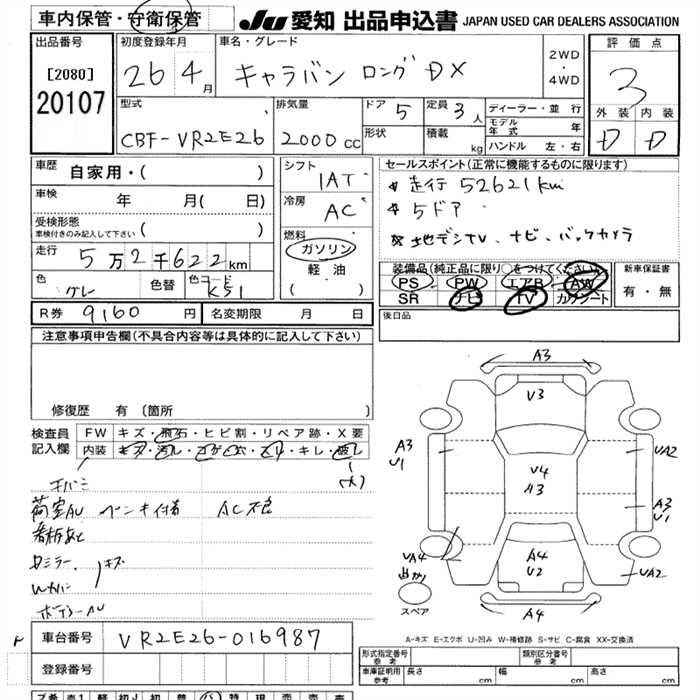 車内保管・守衛保管
JU 愛知 出品申込書 JAPAN USED CAR DEALERS ASSOCIATION
出品番号
[2080]
20107
初度登録年月
26 4月
車名・グレード
キャラバン ロング DX
2WD
・
4WD
評価点
3
外装 内装
D D
型式
CBF-VR2E26
排気量
2000cc
ドア 5
形状
定員 3人
積載 kg
ディーラー・並行
モデル年式 年
ハンドル 左・右
車歴 自家用・( )
車検 年 月( 日)
受検形態
車検付きのみ記入して下さい ( )
走行 5万2千622km
色 グレー
色替
色コード K51
シフト
IAT
冷房
AC
燃料
ガソリン
軽油
( )
セールスポイント(正常に機能するものに限ります)
* 走行 52621km
* 5ドア
* 地デジTV、ナビ、バックカメラ
装備品(純正品に限り○をつけてください)
PS PW エアB AW
SR ナビ TV カワシート
新車保証書
有・無
R券 9160円
名変期限 月 日
後日品
注意事項申告欄(不具合内容等は具体的に記入して下さい)
修復歴 有(箇所 )
検査員記入欄
FW キズ・飛石・ヒビ割・リペア跡・X要
内装 キズ・汚レ・コゲ・穴・スレ・キレ・破レ
(大)
キバミ
荷室AU ペンキ付着 AC不良
看板あと
ミラー キズ
A3
V3
A3
U1
UA2
V4
A3
A3
U1
UA4
A4
U2
UA2
スペア
A4
A-キズ E-エクボ U-凹み W-補修跡 S-サビ C-腐食 XX-交換済
車台番号 VR2E26-016987
登録番号
形式指定番号
参考
類別区分番号
参考
車庫証明用
参考
長さ cm
幅 cm
高さ cm